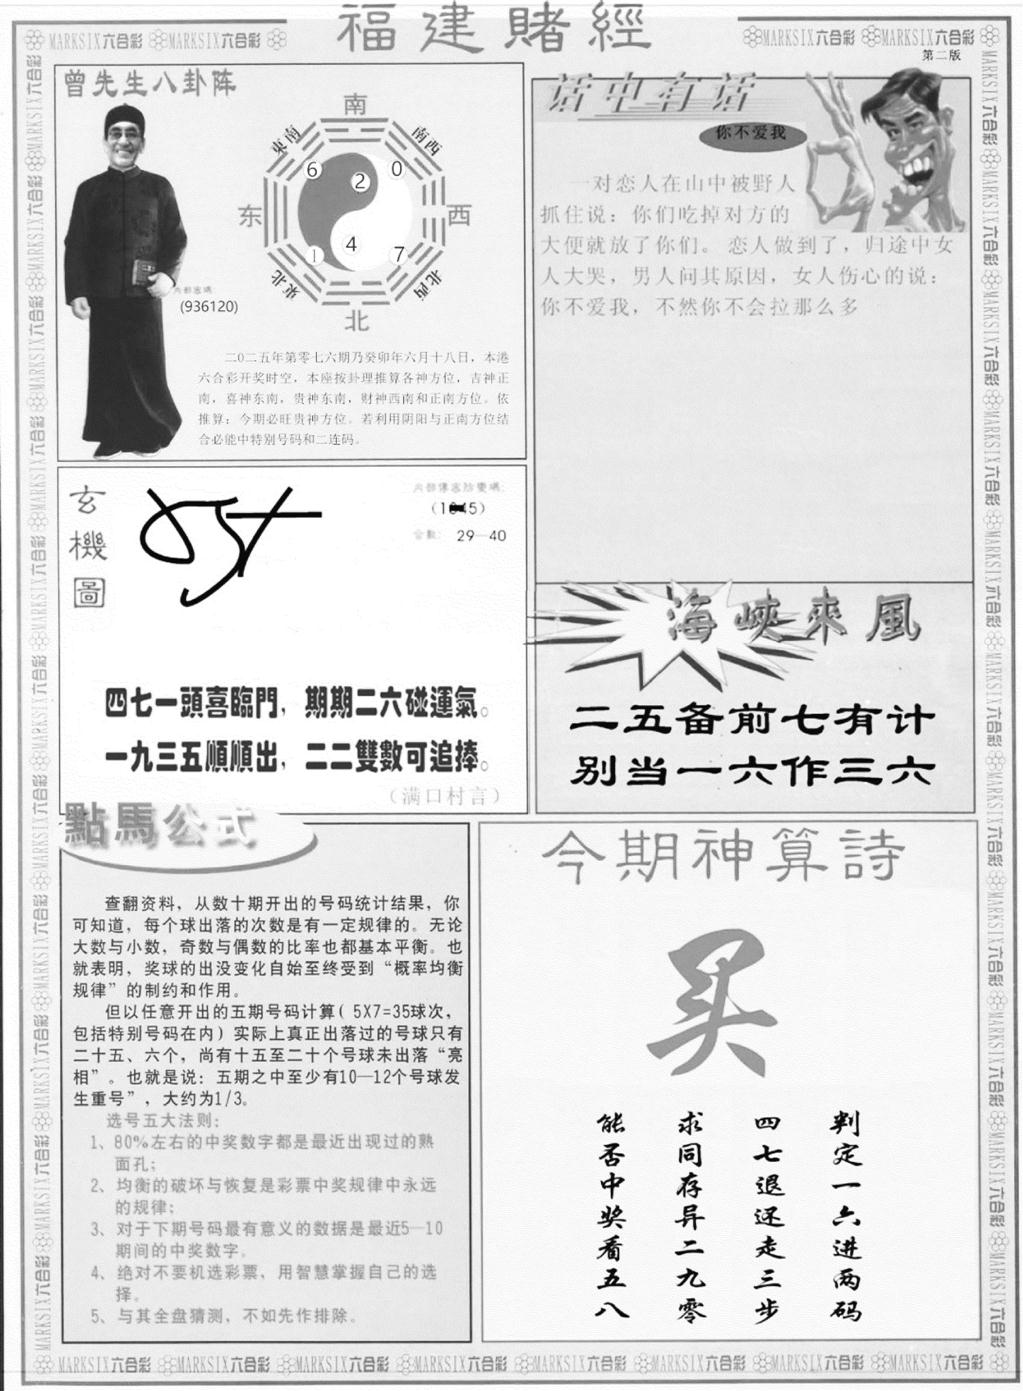 福建賭經
MARKSIX六合彩 MARKSIX六合彩
MARKSIX六合彩 MARKSIX六合彩
第二版
曾先生八卦阵
南
東南
南西
6
2
0
东
西
1
4
7
東北
北西
北
内部密碼:
(936120)
二0二五年第零七六期乃癸卯年六月十八日，本港
六合彩开奖时空，本座按卦理推算各神方位，吉神正
南，喜神东南，贵神东南，财神西南和正南方位。依
推算：今期必旺贵神方位。若利用阴阳与正南方位结
合必能中特别号码和二连码。
话中有话
你不爱我
一对恋人在山中被野人
抓住说：你们吃掉对方的
大便就放了你们。恋人做到了，归途中女
人大哭，男人问其原因，女人伤心的说：
你不爱我，不然你不会拉那么多
玄機圖
29—40
四七一頭喜臨門，期期二六碰運氣。
一九三五順順出，二二雙數可追捧。
（满口村言）
海峽來風
二五备前七有计
别当一六作三六
點馬公式
查翻资料，从数十期开出的号码统计结果，你
可知道，每个球出落的次数是有一定规律的。无论
大数与小数，奇数与偶数的比率也都基本平衡。也
就表明，奖球的出没变化自始至终受到“概率均衡
规律”的制约和作用。
但以任意开出的五期号码计算( 5X7=35球次，
包括特别号码在内) 实际上真正出落过的号球只有
二十五、六个，尚有十五至二十个号球未出落“亮
相”。也就是说：五期之中至少有10—12个号球发
生重号”，大约为1/3。
选号五大法则:
1、80%左右的中奖数字都是最近出现过的熟
面孔；
2、均衡的破坏与恢复是彩票中奖规律中永远
的规律；
3、对于下期号码最有意义的数据是最近5—10
期间的中奖数字。
4、绝对不要机选彩票，用智慧掌握自己的选
择。
5、与其全盘猜测，不如先作排除。
今期神算詩
买
判定一六进两码
四七退还走三步
求同存异二九零
能否中奖看五八
MARKSIX六合彩 MARKSIX六合彩 MARKSIX六合彩 MARKSIX六合彩 MARKSIX六合彩 MARKSIX六合彩 MARKSIX六合彩 MARKSIX六合彩